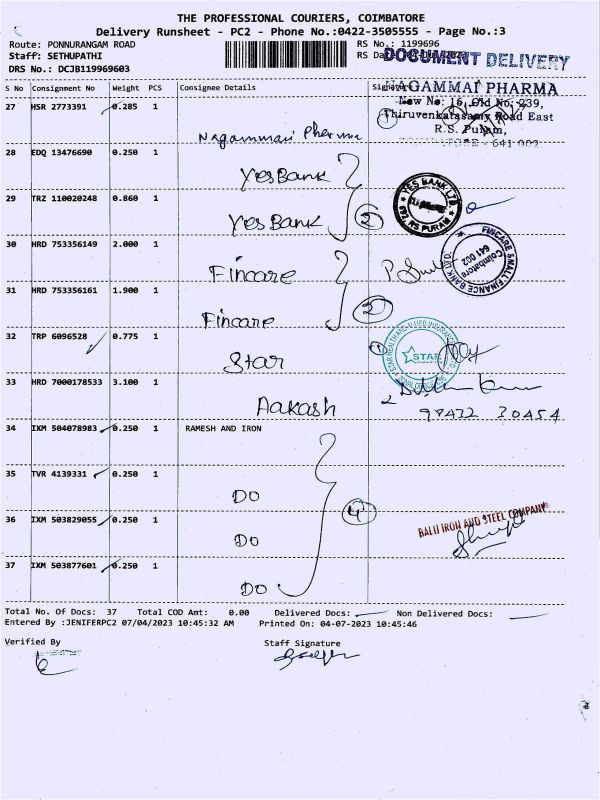 THE PROFESSIONAL COURIERS, COIMBATORE
Delivery Runsheet - PC2 - Phone No.:0422-3505555 - Page No.:3
Route: PONNURANGAM ROAD
RS No.: 1199696
Staff: SETHUPATHI
RS Date:
DOCUMENT DELIVERY
DRS No.: DCJB119969603
S No Consignment No Weight PCS Consignee Details Signature
NAGAMMAI PHARMA
New No: 16, Old No: 239,
Thiruvenkatasamy Road East
R.S. Puram,
COIMBATORE - 641 002
27 HSR 2773391 0.285 1
Nagammai Pharma 1
28 EDQ 13476690 0.250 1
Yes Bank
29 TRZ 110020248 0.860 1
Yes Bank 2
YES BANK LTD.
RS PURAM
30 HRD 753356149 2.000 1
Fincare
FINCARE SMALL FINANCE BANK LTD.
Coimbatore
641 002
31 HRD 753356161 1.900 1
Fincare
32 TRP 6096528 0.775 1
Star
STAR HEALTH AND ALLIED INSURANCE
STAR
33 HRD 7000178533 3.100 1
Aakash
98432 30454
34 IXM 504078983 0.250 1 RAMESH AND IRON
35 TVR 4139331 0.250 1
DO
36 IXM 503829055 0.250 1
DO
4
BALU IRON AND STEEL COMPANY
37 IXM 503877601 0.250 1
DO
Total No. Of Docs: 37 Total COD Amt: 0.00 Delivered Docs: Non Delivered Docs:
Entered By :JENIFERPC2 07/04/2023 10:45:32 AM Printed On: 04-07-2023 10:45:46
Verified By Staff Signature